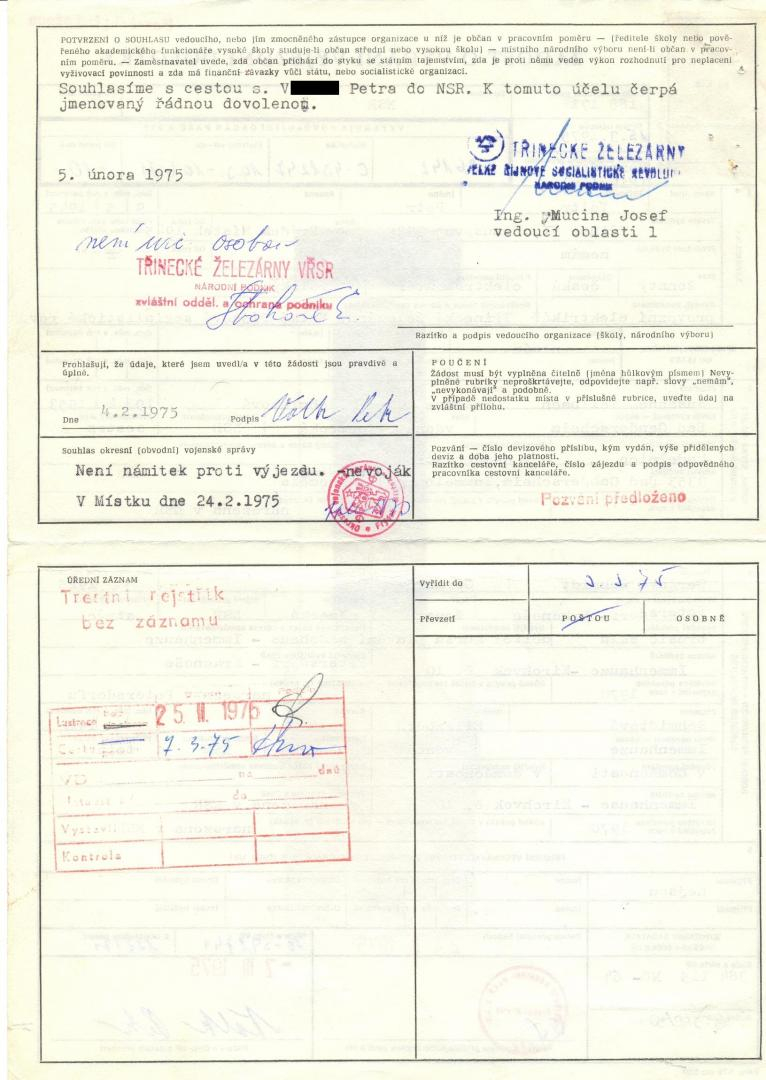 POTVRZENÍ O SOUHLASU vedoucího, nebo jím zmocněného zástupce organizace u níž je občan v pracovním poměru — (ředitele školy nebo pově-
řeného akademického funkcionáře vysoké školy studuje-li občan střední nebo vysokou školu) — místního národního výboru není-li občan v pracov-
ním poměru. — Zaměstnavatel uvede, zda občan přichází do styku se státním tajemstvím, zda je proti němu veden výkon rozhodnutí pro neplacení
vyživovací povinnosti a zda má finanční závazky vůči státu, nebo socialistické organizaci.
Souhlasíme s cestou s. V Petra do NSR. K tomuto účelu čerpá
jmenovaný řádnou dovolenou.
TŘINECKÉ ŽELEZÁRNY
VELKÉ ŘÍJNOVÉ SOCIALISTICKÉ REVOLUCE
NÁRODNÍ PODNIK
5. února 1975
Ing. Mucina Josef
vedoucí oblasti 1
není urč osobou
TŘINECKÉ ŽELEZÁRNY VŘSR
NÁRODNÍ PODNIK
zvláštní odděl. a ochrana podniku
Razítko a podpis vedoucího organizace (školy, národního výboru)
Prohlašuji, že údaje, které jsem uvedl/a v této žádosti jsou pravdivé a
úplné.
Dne 4.2.1975 Podpis
POUČENÍ
Žádost musí být vyplněna čitelně (jména hůlkovým písmem) Nevy-
plněné rubriky neproškrtávejte, odpovídejte např. slovy „nemám",
„nevykonávají" a podobně.
V případě nedostatku místa v příslušné rubrice, uveďte údaj na
zvláštní přílohu.
Souhlas okresní (obvodní) vojenské správy
Není námitek proti výjezdu. -nevoják
V Místku dne 24.2.1975
Pozvání — číslo devizového příslibu, kým vydán, výše přidělených
deviz a doba jeho platnosti.
Razítko cestovní kanceláře, číslo zájezdu a podpis odpovědného
pracovníka cestovní kanceláře.
Pozvání předloženo
ÚŘEDNÍ ZÁZNAM
Trestní rejstřík
bez záznamu
Vyřídit do 3.3.75
Převzetí POŠTOU OSOBNĚ
Lustrace 25. III. 1975
7.3.75
VD na dnů
do
Vystavil
Kontrola